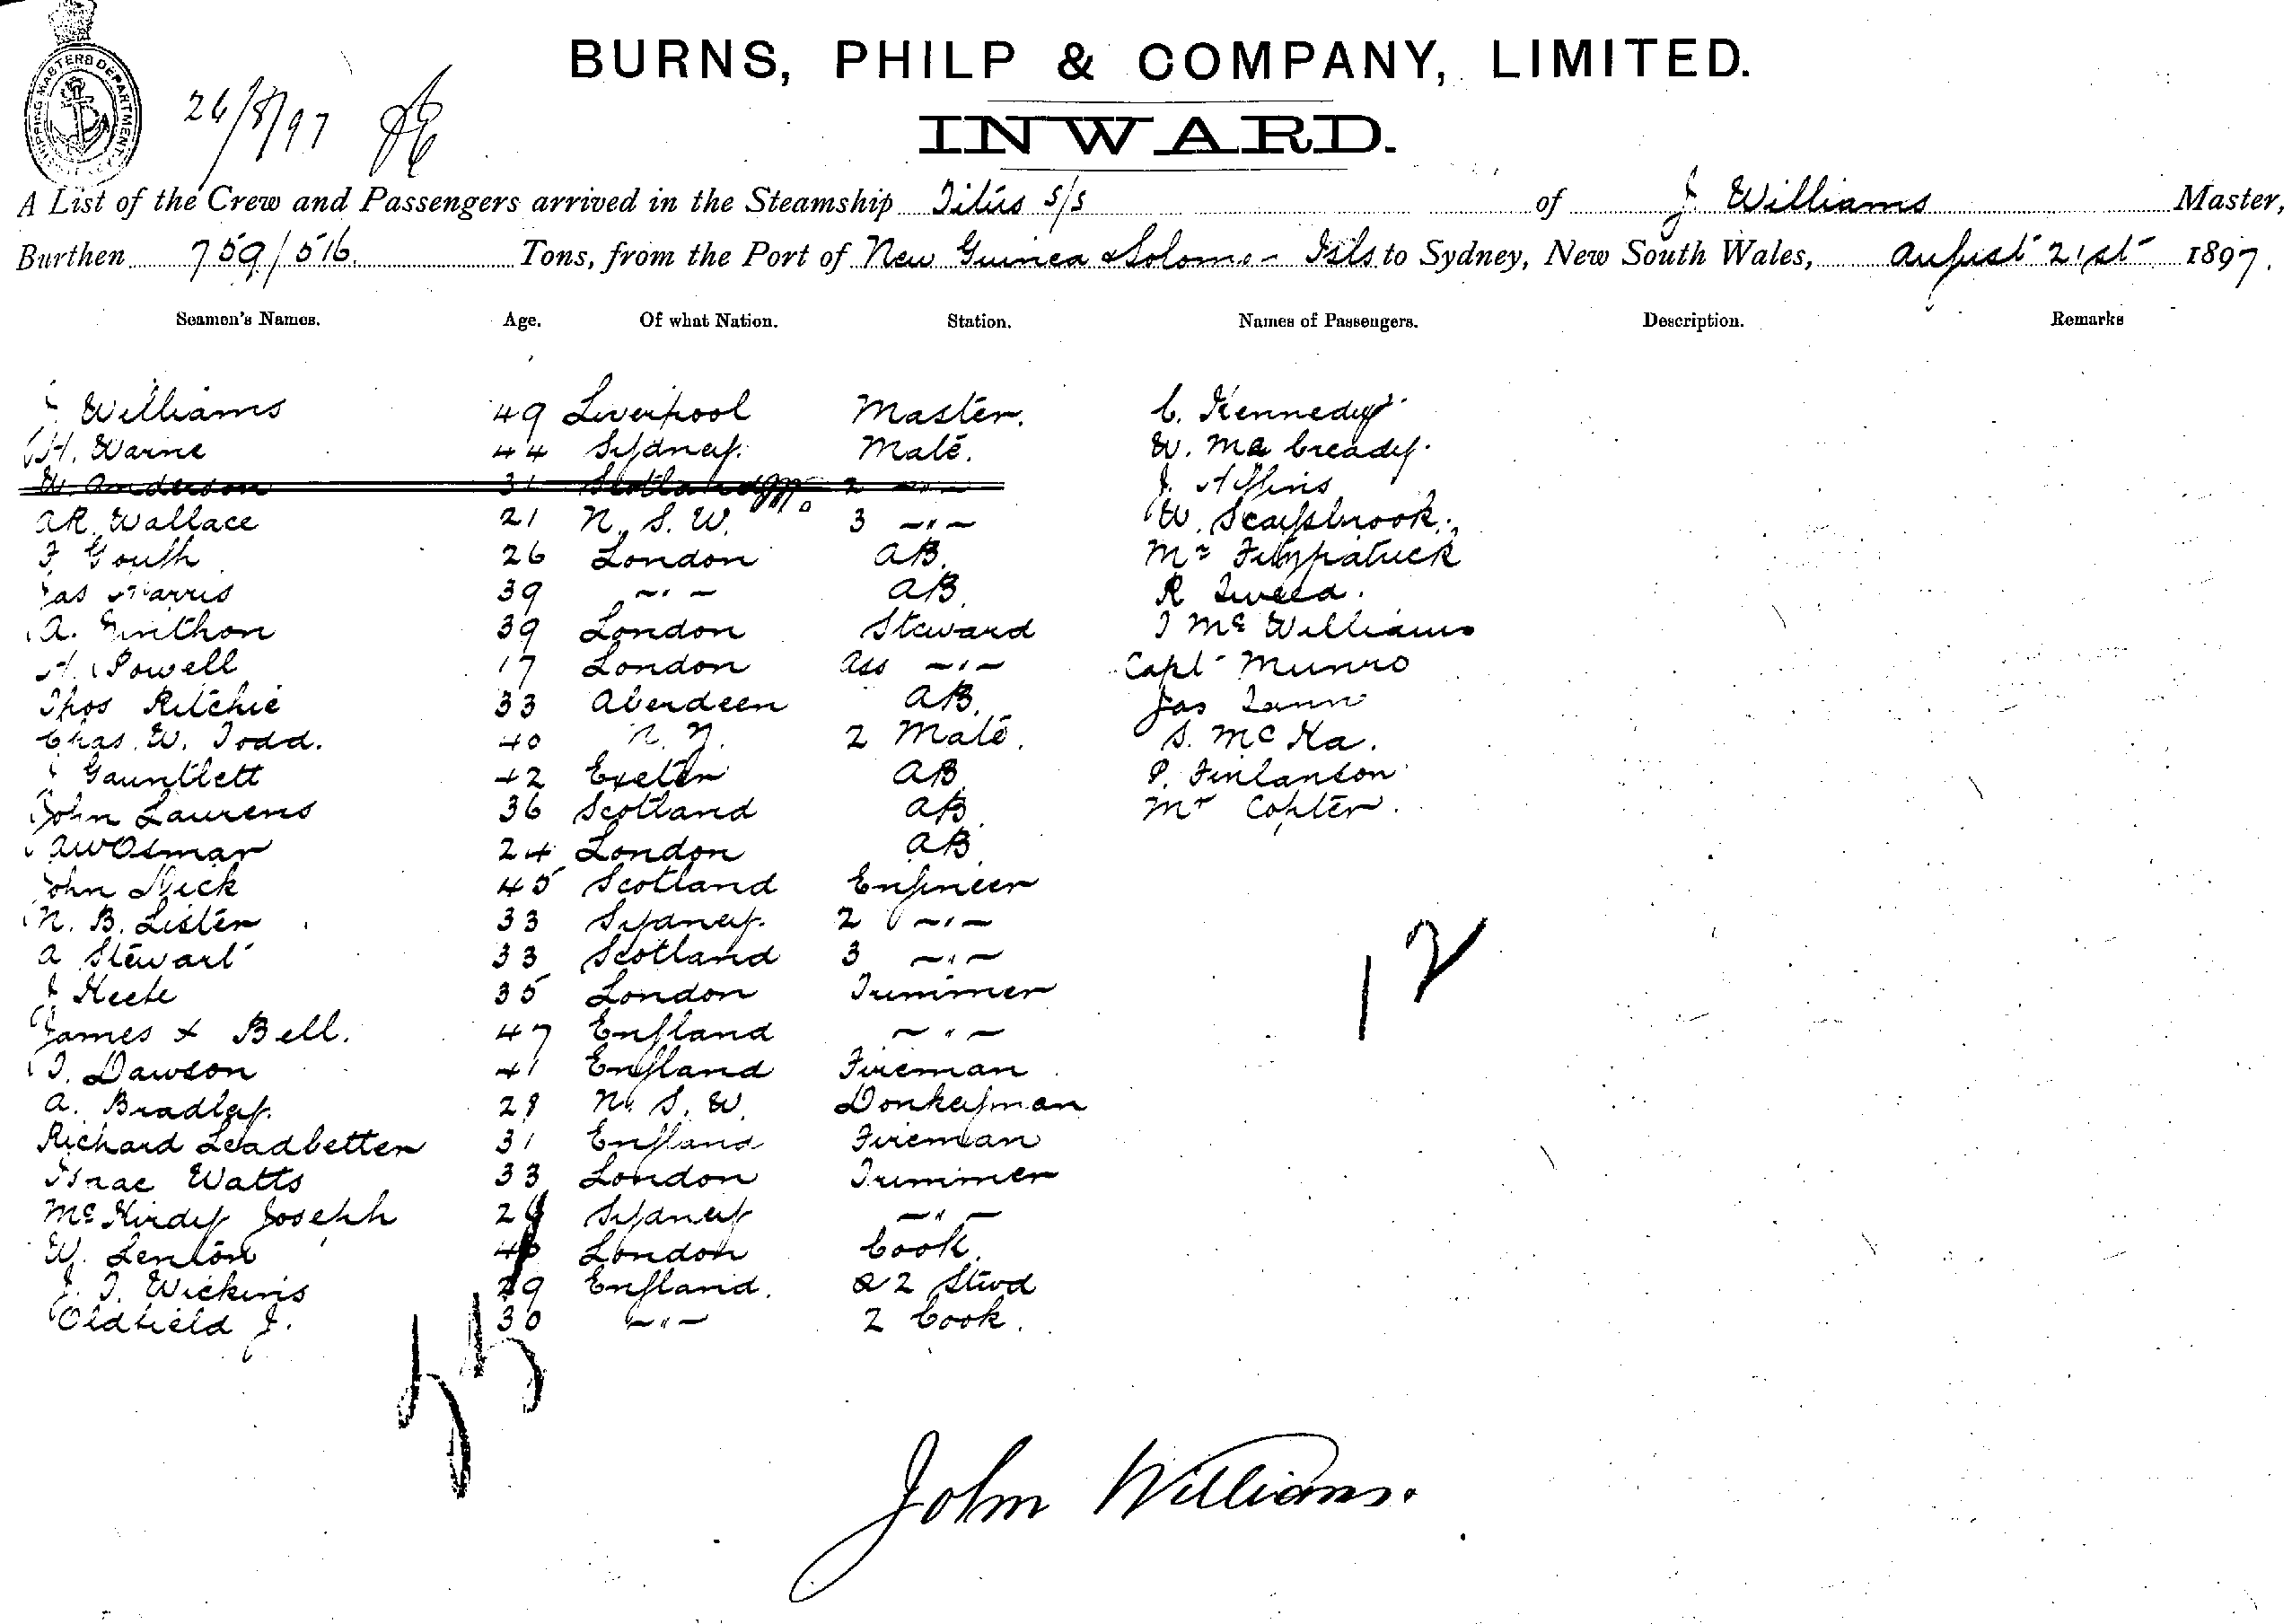 BURNS, PHILP & COMPANY, LIMITED.
SHIPPING MASTERS DEPARTMENT
26/8/97
INWARD.
A List of the Crew and Passengers arrived in the Steamship Titus s/s of J Williams Master,
Burthen 759/516. Tons, from the Port of New Guinea & Solomon Isls to Sydney, New South Wales, August 21st 1897.
Seamen's Names. Age. Of what Nation. Station. Names of Passengers. Description. Remarks
J Williams 49 Liverpool Master. C. Kennedy
H. Warne 44 Sydney. Mate. W. Mc Cready.
W. Anderson 31 Scotland 2 -"- J.
AR. Wallace 21 N. S. W. 3 -"- W. Scarsbrook.
F Gough 26 London AB. Mr Fitzpatrick
Jas Harris 39 -"- AB. R Tweed.
A. 39 London Steward J Mc Williams
H. Powell 17 London Ass -"- Capt Munro
Thos Ritchie 33 Aberdeen AB. Jas
Chas. W. Todd. 40 N. Z. 2 Mate. S. Mc Ka.
J Gauntlett 42 Exeter AB P. Finlanson
John Laurens 36 Scotland AB. Mr Copter.
24 London AB
John 45 Scotland Engineer
N. B. Lister 33 Sydney. 2 -"-
A Stewart 33 Scotland 3 -"-
J 35 London Trimmer
James Bell. 47 England -"-
T. Dawson 41 England Fireman
A. Bradley. 28 N. S. W. Donkeyman
Richard Leadbetter 31 England Fireman
Isaac Watts 33 London Trimmer
Mc Kirdy Joseph 26 Sydney -"-
W. Lenton London Cook.
J. T. Wickins 29 England. 2 Stwd
Oldfield J. 30 -"- 2 Cook.
12
John Williams.